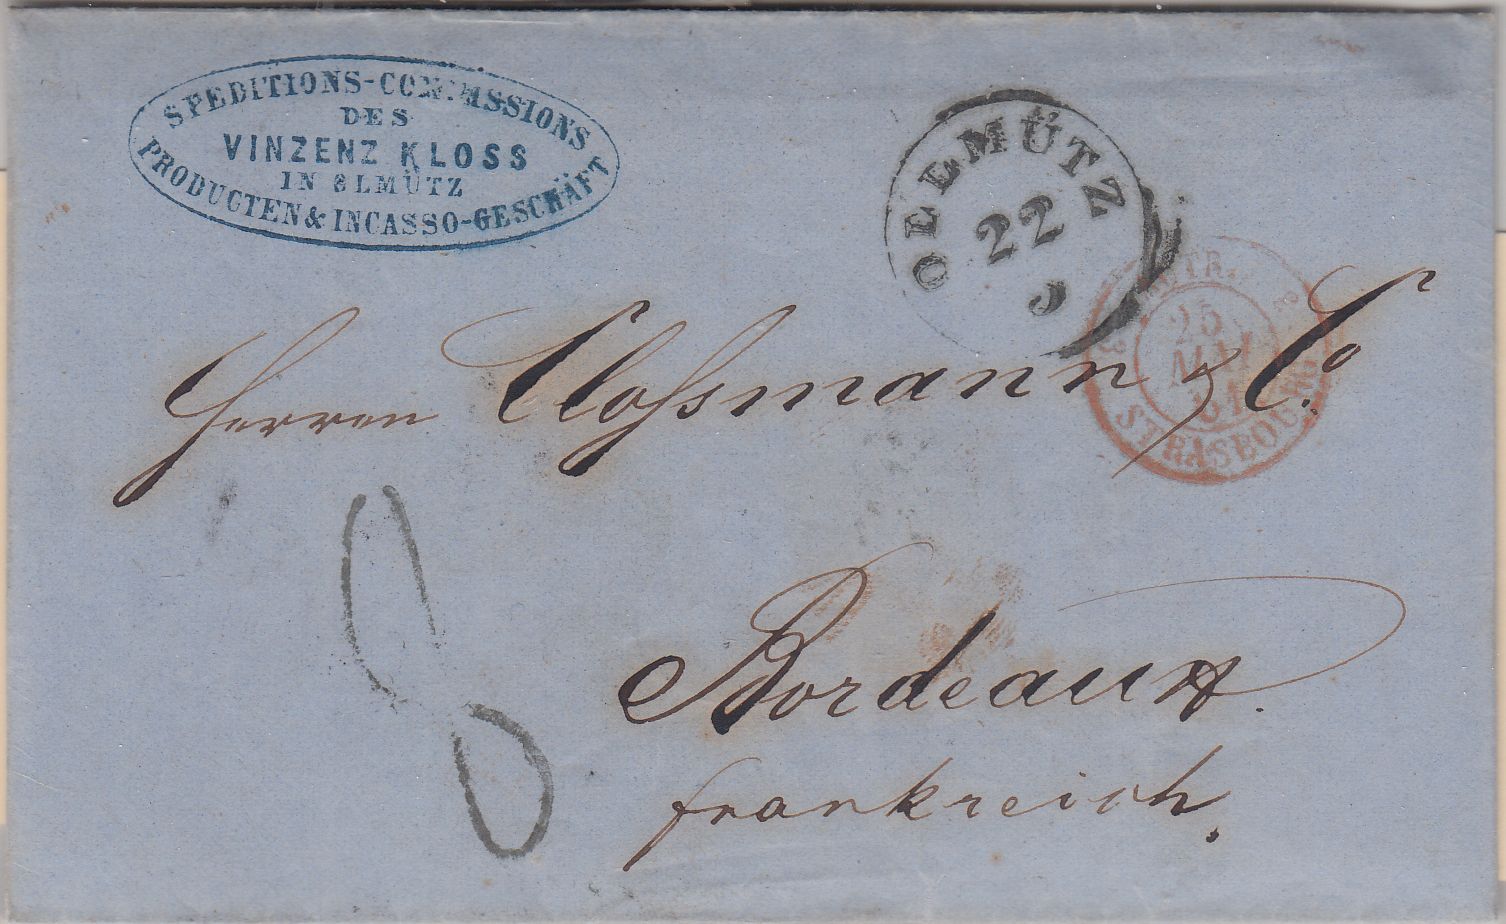 SPEDITIONS-COMMISSIONS
DES
VINZENZ KLOSS
IN OLMÜTZ
PRODUCTEN & INCASSO-GESCHÄFT
OLEMÜTZ
22
5
AUTR.
25
MAI
61
STRASBOURG
Herren Clossmann & Co.
8
Bordeaux.
Frankreich.